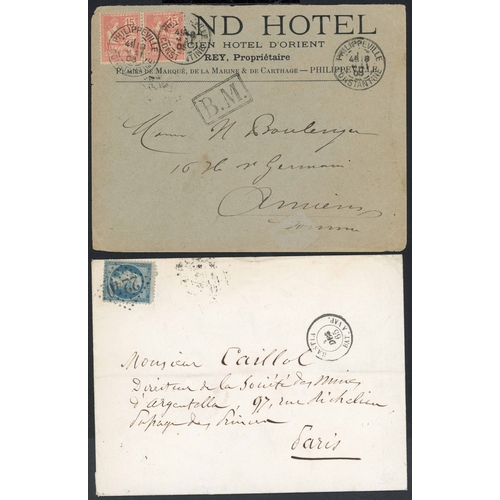 15 15
ND HOTEL
CIEN HOTEL D'ORIENT
REY, Propriétaire
DE LA MARINE & DE CARTHAGE — PHILIPPEVILLE
PHILIPPEVILLE
CONSTANTINE
PHILIPPEVILLE
CONSTANTINE
B.M.
Boulenger
16 St Germain
Amiens
Somme
BASTIA
Monsieur Caillol
Directeur de la Société des Mines
d'Argentella 97, rue Richelieu
Passage des Princes
Paris